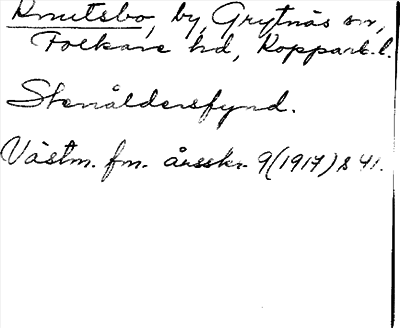 Knutsbo, by, Grytnäs sn,
Folkare hd, Kopparb. l.
Stenåldersfynd.
Västm. fm. årsskr. 9 (1917) s 41.